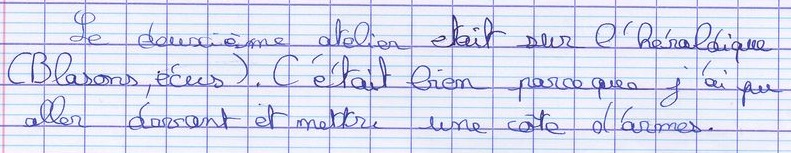 Le deuxième atelier etait sur l'héraldique
(Blasons, écus). C'était bien parceque j'ai pu
aller davant et mettre une cote d'armes.